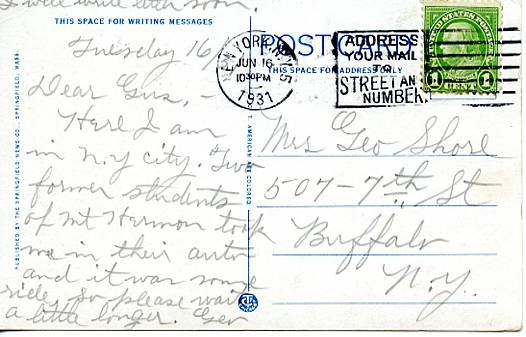 I will write letter soon.
THIS SPACE FOR WRITING MESSAGES
Tuesday 16
Dear Gus, -
Here I am
in N.Y city. Two
former students
of Mt Hermon took
me in their auto
and it was some
ride, so please wait
a little longer. Geo
PUBLISHED BY THE SPRINGFIELD NEWS CO. SPRINGFIELD, MASS.
T. AMERICAN ART COLORED
POST CARD
THIS SPACE FOR ADDRESS ONLY
NEW YORK, N.Y.
JUN 16
10 PM
1931
ADDRESS
YOUR MAIL
TO
STREET AND
NUMBER
UNITED STATES POSTAGE
1 CENT 1
Mrs Geo Shore
507 - 7th St
Buffalo
N.Y.